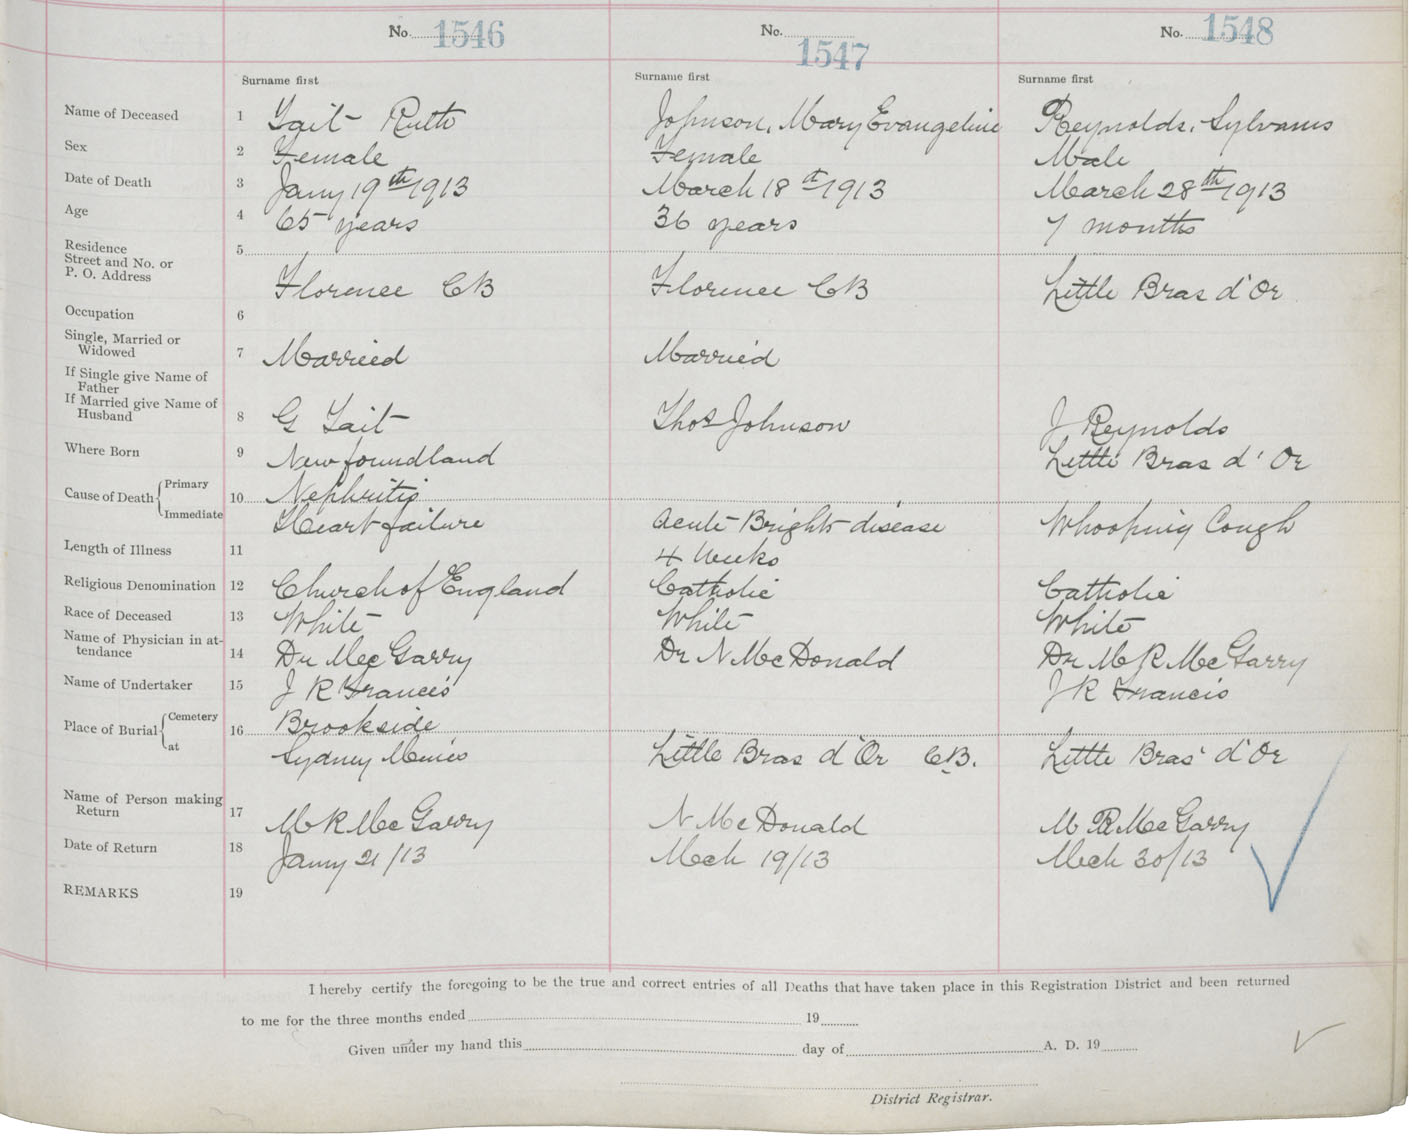 No. 1546
No. 1547
No. 1548
Surname first
Surname first
Surname first
Name of Deceased 1 Tait Ruth Johnson, Mary Evangeline Reynolds, Sylvanus
Sex 2 Female Female Male
Date of Death 3 Jany 19th 1913 March 18th 1913 March 28th 1913
Age 4 65 years 36 years 7 months
Residence 5
Street and No. or
P. O. Address Florence CB Florence CB Little Bras d'Or
Occupation 6
Single, Married or
Widowed 7 Married Married
If Single give Name of
Father
If Married give Name of
Husband 8 G Tait Thos Johnson J Reynolds
Where Born 9 Newfoundland Little Bras d'Or
Cause of Death Primary 10 Nephritis
Immediate Heart failure Acute Brights disease Whooping Cough
Length of Illness 11 4 Weeks
Religious Denomination 12 Church of England Catholic Catholic
Race of Deceased 13 White White White
Name of Physician in at-
tendance 14 Dr McGarry Dr N McDonald Dr M R McGarry
Name of Undertaker 15 J R Francis J R Francis
Place of Burial Cemetery 16 Brookside
at Sydney Mines Little Bras d'Or C.B. Little Bras d'Or
Name of Person making
Return 17 M R McGarry N McDonald M R McGarry
Date of Return 18 Jany 21/13 Mch 19/13 Mch 30/13
REMARKS 19
I hereby certify the foregoing to be the true and correct entries of all Deaths that have taken place in this Registration District and been returned
to me for the three months ended 19
Given under my hand this day of A. D. 19
District Registrar.